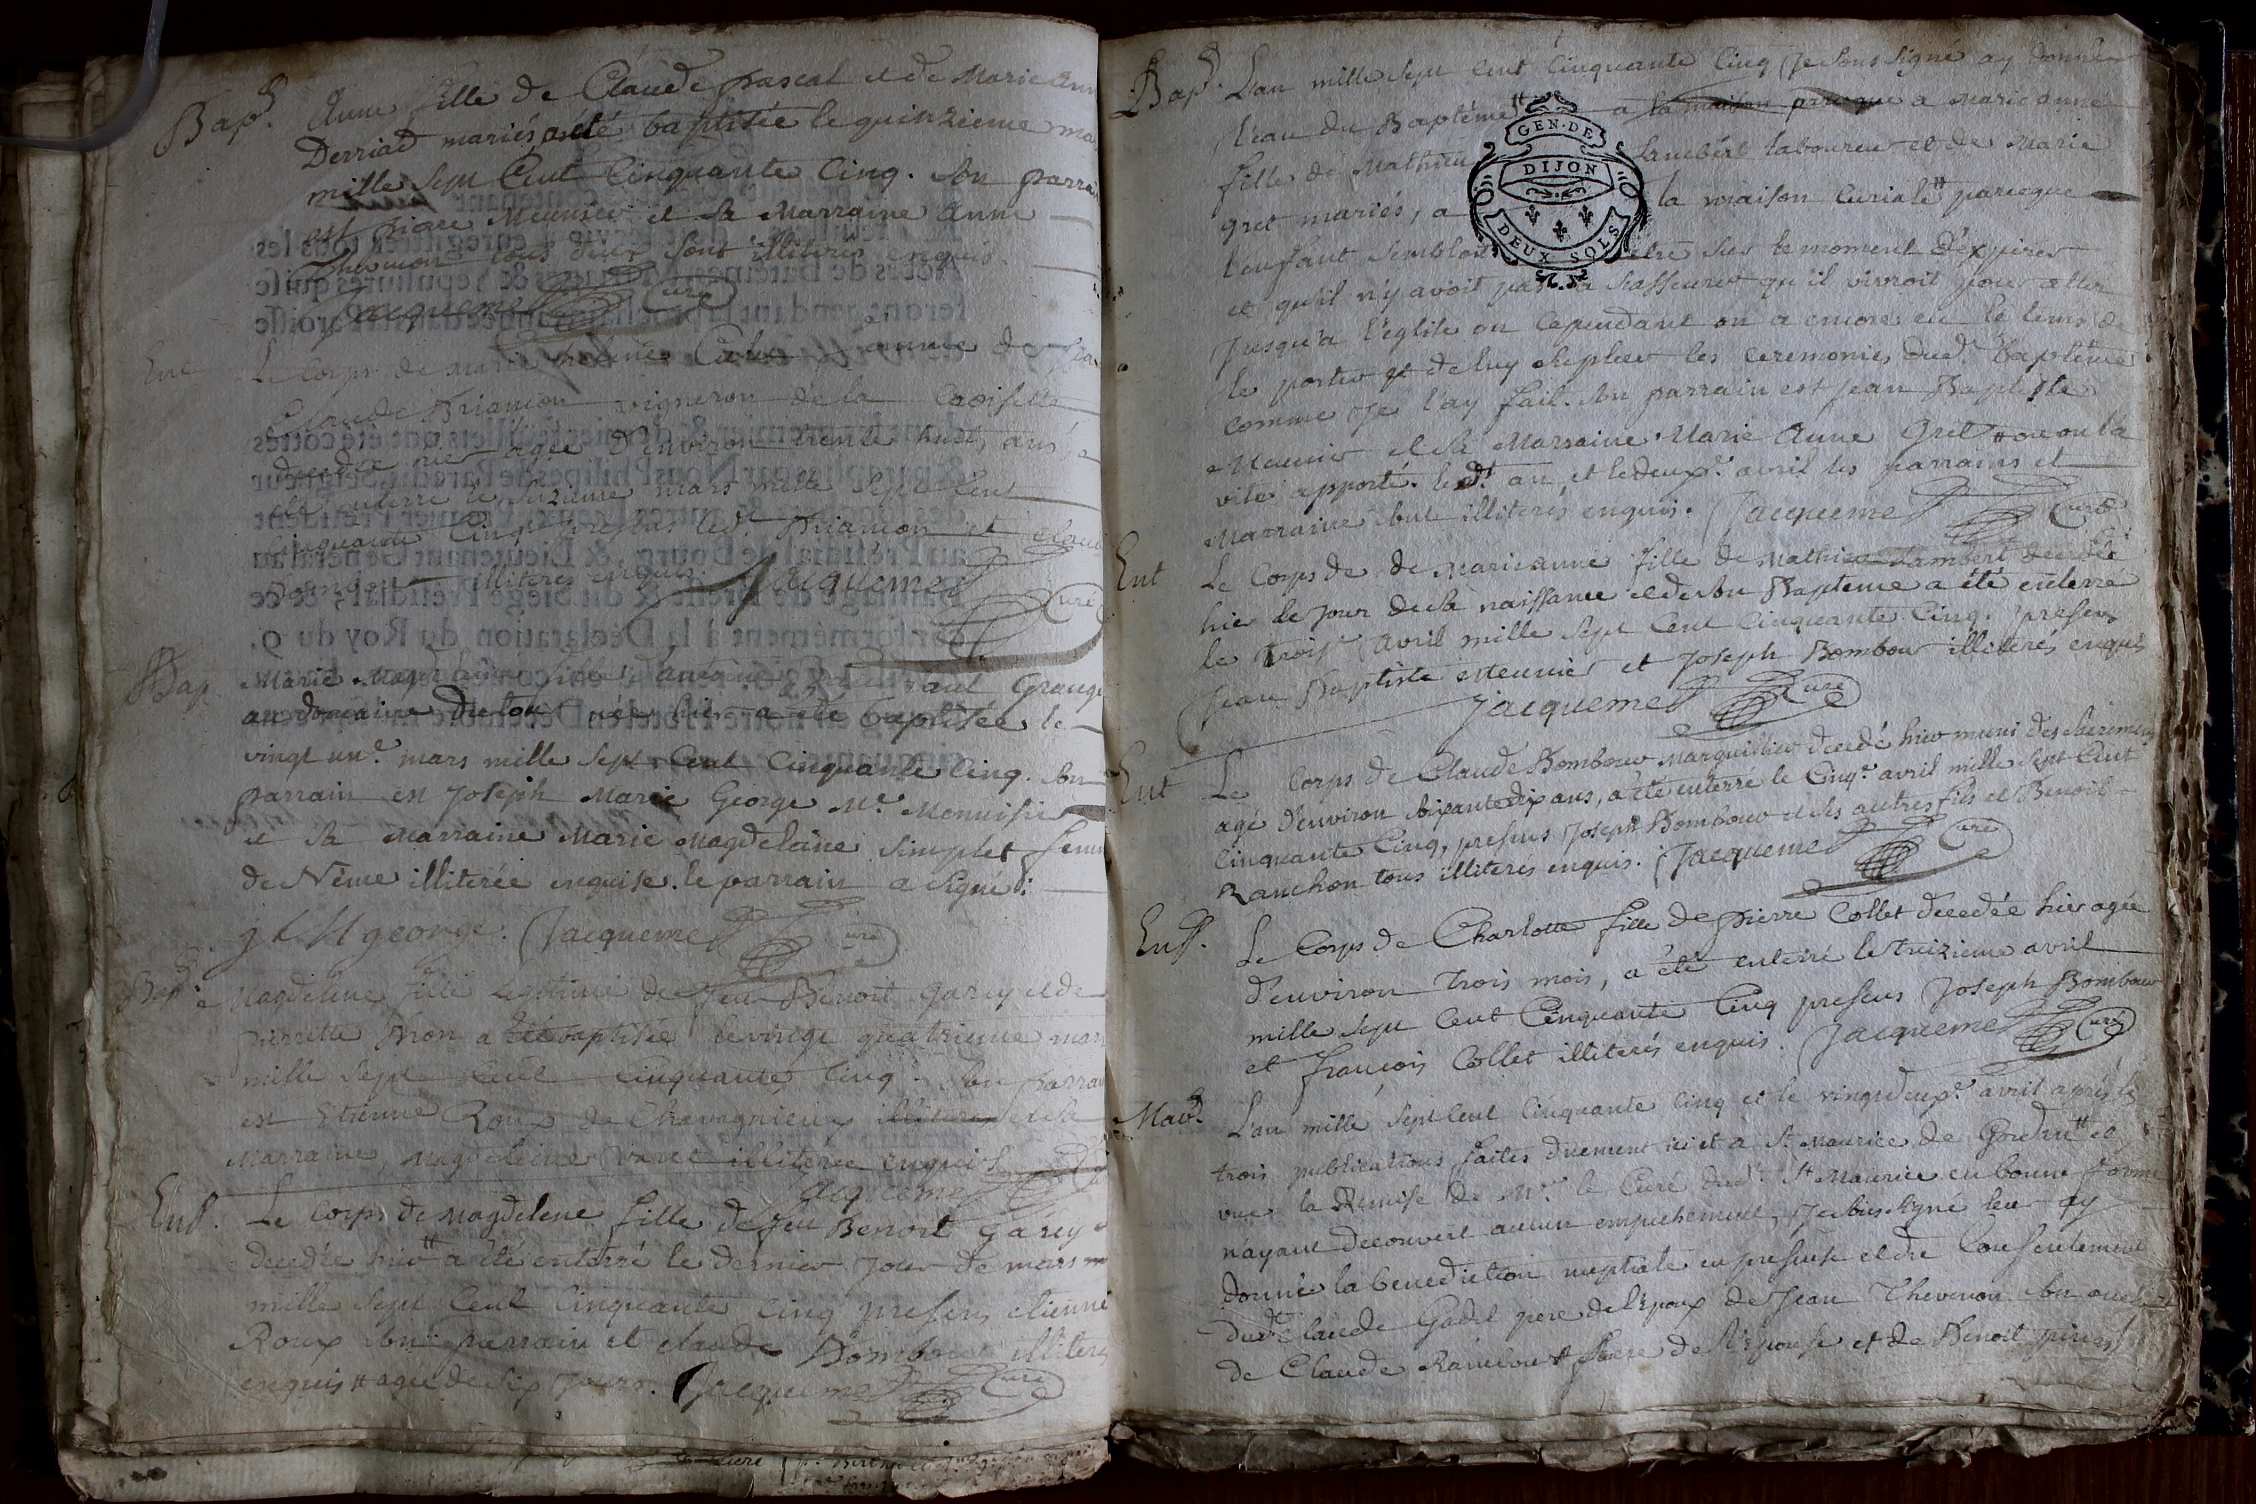 Bap.
Anne fille de Claude pascal et de Marie Ann
Derriad mariés, a eté baptisée le quinzieme mar
mille sept Cent Cinquante Cinq. son parra
est piare Meunier et sa Marraine Anne
Thevenon tous deux sont illiterés enquis.
Jacqueme Curé
Ent
Le Corps de Marie femme de
Claude Briancon vigneron de la
agée d'environ trente huit ans, a
été enterré le seizieme mars mille sept Cent
Cinquante Cinq presens led. Briancon et claud
illiterés enquis. Jacqueme
Curé
Bap
Marie
au domaine Dutour née hier a été baptisée le
vingt un.e mars mille sept Cent Cinquante Cinq. son
parrain est Joseph Marie George M.e Menuisie
et sa Marraine Marie Magdelaine Simplet femm
de Néme illiterée enquise. le parrain a signé.
j M george. Jacqueme Curé
Bap.
Magdelene fille Legitime de feu Benoit garcy et de
pierrette a été baptisée le vingt quatrieme mar
mille sept Cent Cinquante Cinq. son parra
est Etienne Roux de Chavagnieux illiteré et sa
Marraine, Magdeleine illiterée enquis
Jacqueme
Ent.
Le Corps de Magdelene fille de feu Benoit garcy
decedée hier # a été enterré le dernier Jour de mars
mille sept Cent Cinquante Cinq presens etienne
Roux son parrain et claude Bombour illiterés
enquis # agée de six Jours. Jacqueme Curé
Bap.
L'an mille sept Cent Cinquante Cinq Je sous signé ay donné
l'eau du Baptéme # a la maison parceque a Marie anne
fille de Mathieu Lambert laboureur et de Marie
gret mariés, a la maison Curiale # parceque
l'enfant sembloit etre sur le moment d'expirer
et qu'il n'y avoit pas a s'asseurer qu'il vivroit pour aller
Jusqu'a l'eglise ou Cependant on a encore eu le tems de
le porter et de luy supleer les Ceremonies dud. Baptême
Comme Je l'ay fait. son parrain est Jean Baptiste
Meunier et sa Marraine Marie Anne Gret # ou on l'a
vite apporté. led. an, et le deux.e avril les parrains et
Marraine sont illiterés enquis. Jacqueme Curé
GEN. DE
DIJON
DEUX SOLS
Ent
Le Corps de de Marie anne fille de Mathieu Lambert decedée
hier le jour de sa naissance et de son Bapteme a été enterré
le Trois.e avril mille sept Cent Cinquante Cinq. presens
Jean Baptiste Meunier et Joseph Bombour illiterés enquis
Jacqueme Curé
Ent
Le Corps de Claude Bombour Marguillier decedé hier muni des sacremens
agé d'environ soixante dix ans, a été enterré le Cinq.e avril mille sept Cent
Cinquante Cinq, presens Joseph Bombour et ses autres fils et Benoit
Ranchon tous illiterés enquis. Jacqueme Curé
Ent.
Le Corps de Charlotte fille de Pierre Collet decedée hier agée
d'environ trois mois, a été enterré le treizieme avril
mille sept Cent Cinquante Cinq presens Joseph Bombour
et François Collet illiterés enquis. Jacqueme Curé
Mar.
L'an mille sept Cent Cinquante Cinq et le vingtdeux.e avril après les
trois publications faites duement ici et a St. Maurice de Gourdan # et
vue la Remise de Mr. le Curé dud. St. Maurice en bonne forme
n'ayant decouvert aucun empechement, Je sous signé leur ay
donné la benediction nuptiale en presence et du Consentement
dud. Claude Gadel pere de l'epoux de Jean Thevenon son oncle
de Claude # frere de l'Epouse et de Benoit